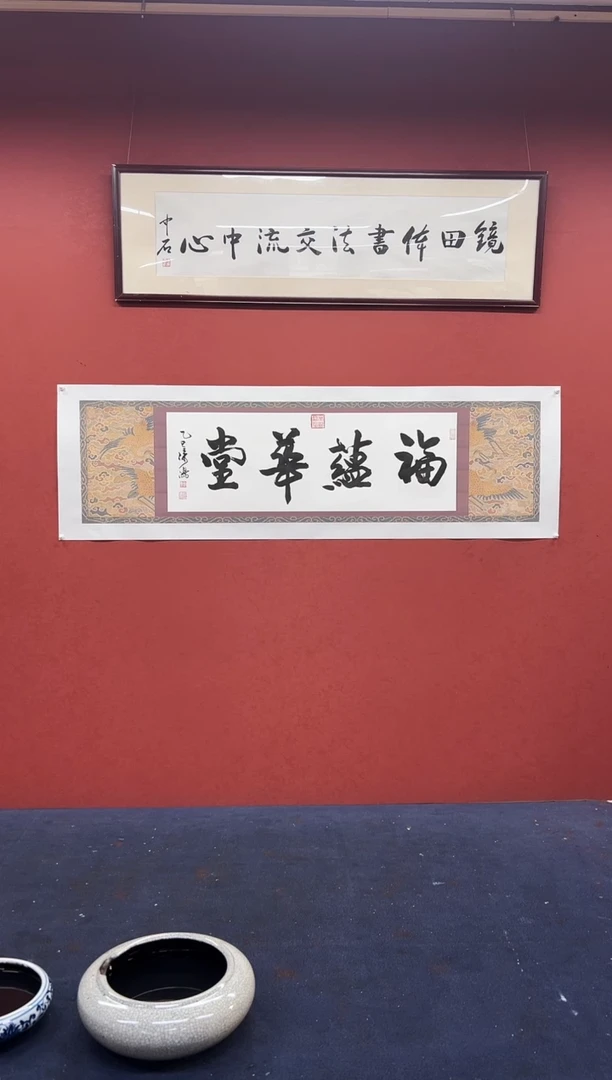 鏡田体書法交流中心
中石
福蘊華堂